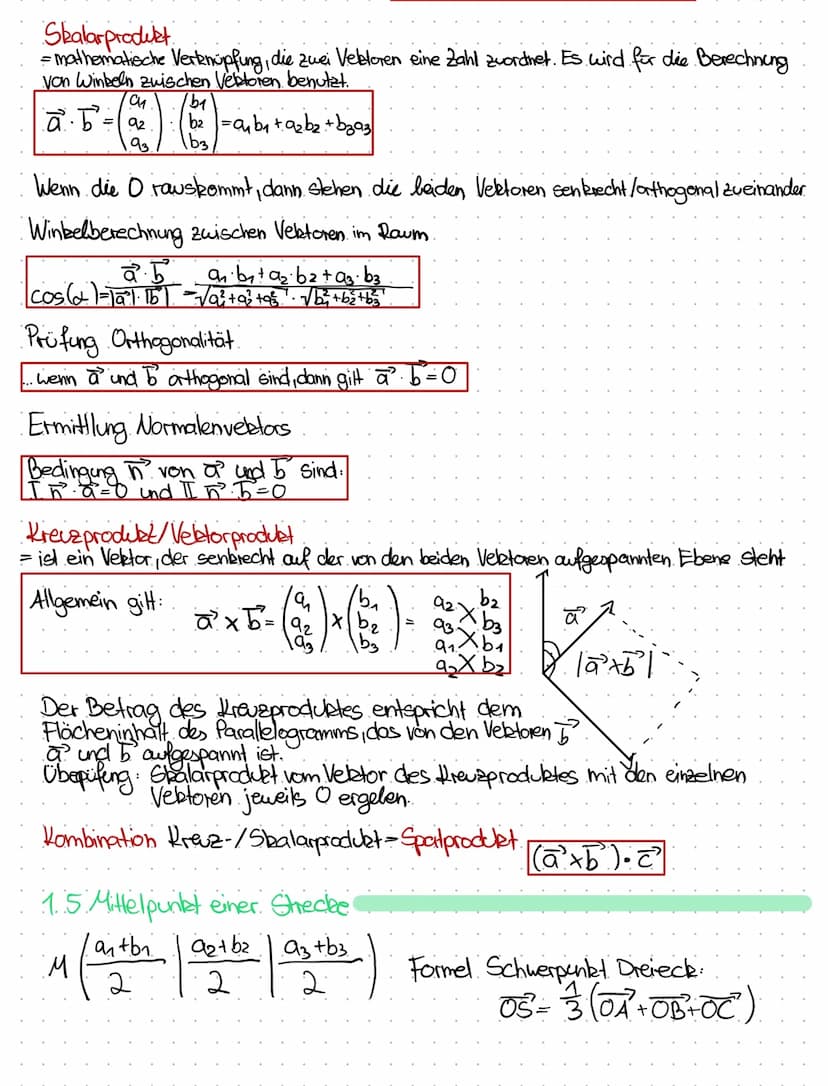 Skalarprodukt
= mathematische Verknüpfung, die zwei Vektoren eine Zahl zuordnet. Es wird für die Berechnung
von Winkeln zwischen Vektoren benutzt.
a⃗ · b⃗ = (a₁ a₂ a₃) · (b₁ b₂ b₃) = a₁b₁ + a₂b₂ + b₃a₃
Wenn die 0 rauskommt, dann stehen die beiden Vektoren senkrecht/orthogonal zueinander
Winkelberechnung zwischen Vektoren im Raum
cos(α) = a⃗ · b⃗ / |a⃗| · |b⃗| = a₁·b₁ + a₂·b₂ + a₃·b₃ / √a₁²+a₂²+a₃² · √b₁²+b₂²+b₃²
Prüfung Orthogonalität
... wenn a⃗ und b⃗ orthogonal sind, dann gilt a⃗ · b⃗ = 0
Ermittlung Normalenvektors
Bedingung n⃗ von a⃗ und b⃗ sind:
I n⃗ · a⃗ = 0 und II n⃗ · b⃗ = 0
Kreuzprodukt/Vektorprodukt
= ist ein Vektor, der senkrecht auf der von den beiden Vektoren aufgespannten Ebene steht
Allgemein gilt: a⃗ × b⃗ = (a₁ a₂ a₃) × (b₁ b₂ b₃) =
a₂ b₂
a₃ × b₃
a₁ × b₁
a₂ × b₂
a⃗
|a⃗×b⃗|
b⃗
Der Betrag des Kreuzproduktes entspricht dem
Flächeninhalt des Parallelogramms, das von den Vektoren
a⃗ und b⃗ aufgespannt ist.
Übepüfung: Skalarprodukt vom Vektor des Kreuzproduktes mit den einzelnen
Vektoren jeweils 0 ergeben.
Kombination Kreuz-/Skalarprodukt = Spatprodukt (a⃗×b⃗) · c⃗
1.5 Mittelpunkt einer Strecke
M (a₁+b₁/2 | a₂+b₂/2 | a₃+b₃/2)
Formel Schwerpunkt Dreieck:
OS⃗ = 1/3 (OA⃗ + OB⃗ + OC⃗)